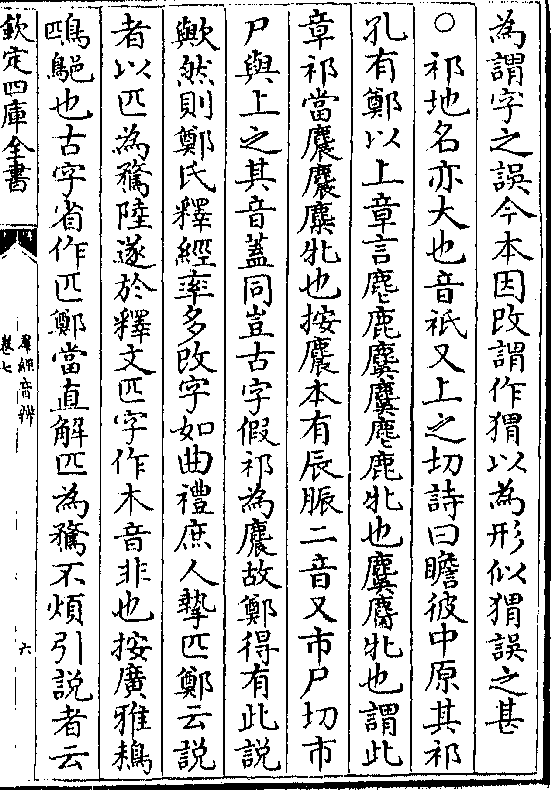 為謂字之誤今本因改謂作猬以為形似猬誤之甚
○祁地名亦大也音祇又上之切詩曰瞻彼中原其祁
孔有鄭以上章言麀鹿麌麌麀鹿牝也麌麕牝也謂此
章祁當麎麎麋牝也按麎本有辰脤二音又市尸切市
尸與上之其音蓋同豈古字假祁為麎故鄭得有此説
歟然則鄭氏釋經率多改字如曲禮庶人摯匹鄭云説
者以匹為鶩陸遂於釋文匹字作木音非也按廣雅鶩
鴄也古字省作匹鄭當直解匹為鶩不煩引説者云
欽定四庫全書
羣經音辨
卷七
六